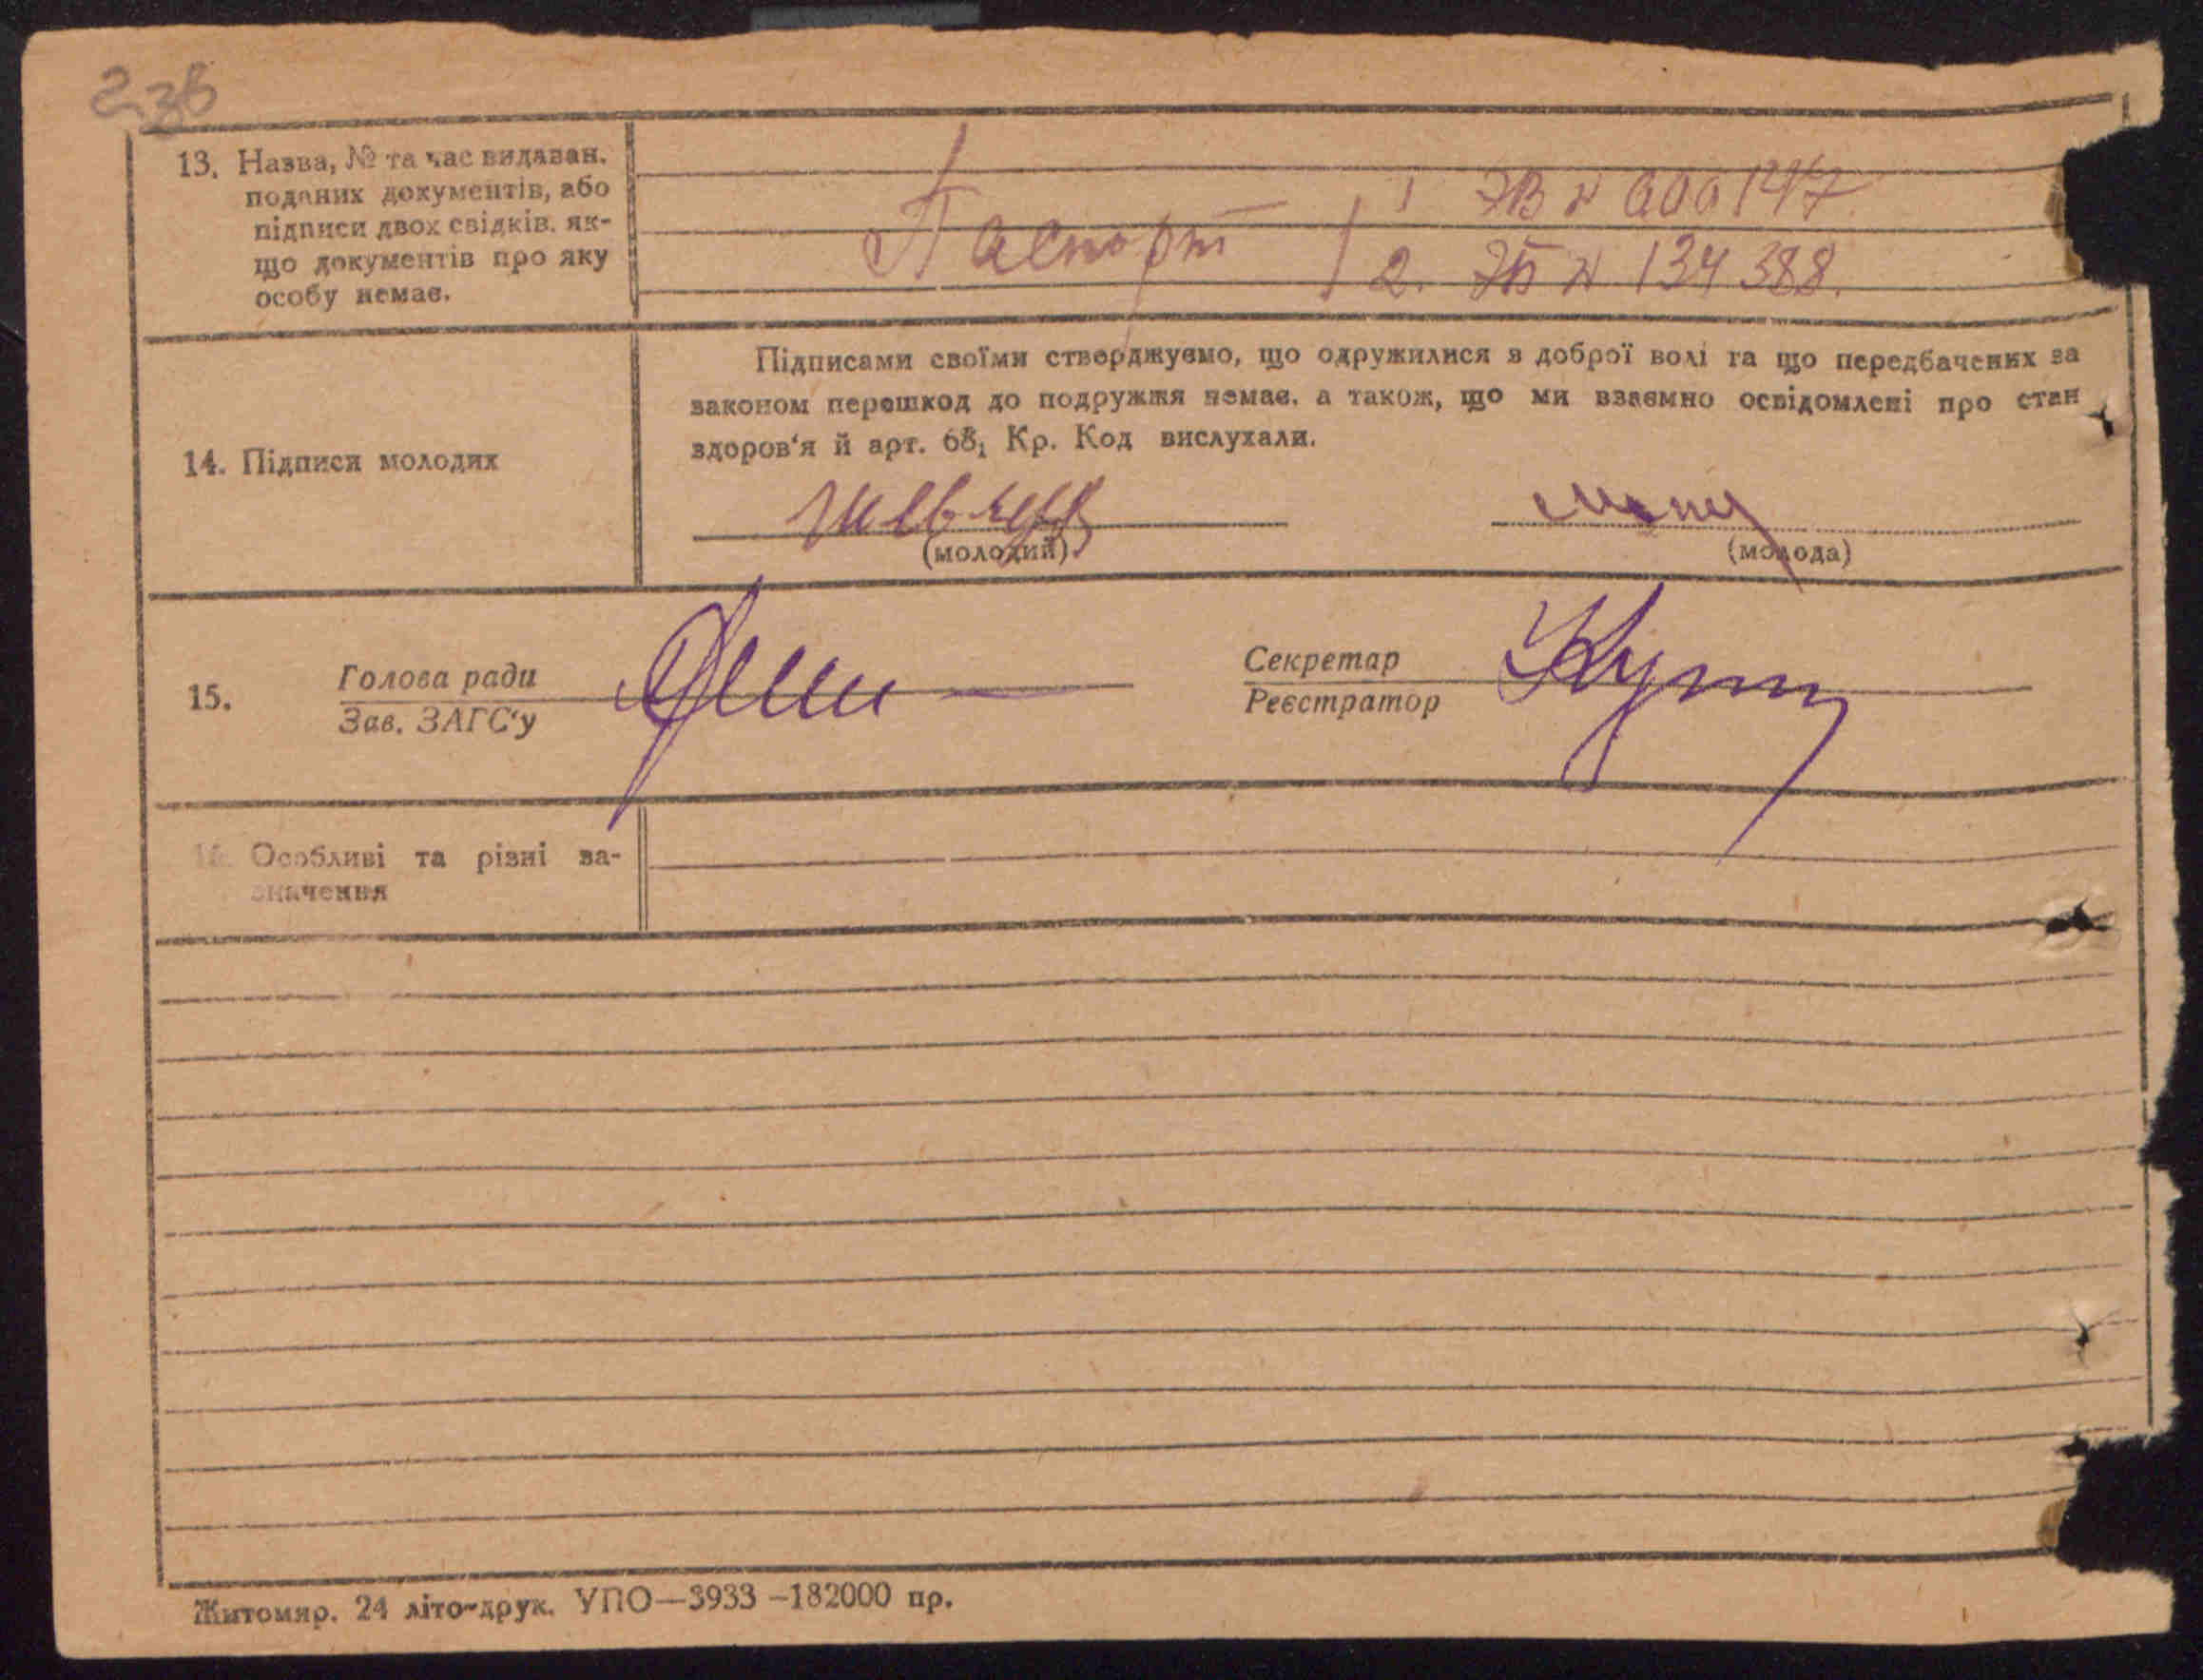 238
13. Назва, № та час видаван.
поданих документів, або
підписи двох свідків, як-
що документів про яку
особу немає.
1 ЭВ N 000147
Паспорт
2. ЭБ N 134388.
Підписами своїми стверджуємо, що одружилися з доброї волі та що передбачених за
законом перешкод до подружжя немає, а також, що ми взаємно освідомлені про стан
здоров'я й арт. 68₁ Кр. Код вислухали.
14. Підписи молодих
(молодий) (молода)
15. Голова ради
Зав. ЗАГС'у
Секретар
Реєстратор
16. Особливі та різні за-
значення
Житомир. 24 літо-друк. УПО—3933 —182000 пр.